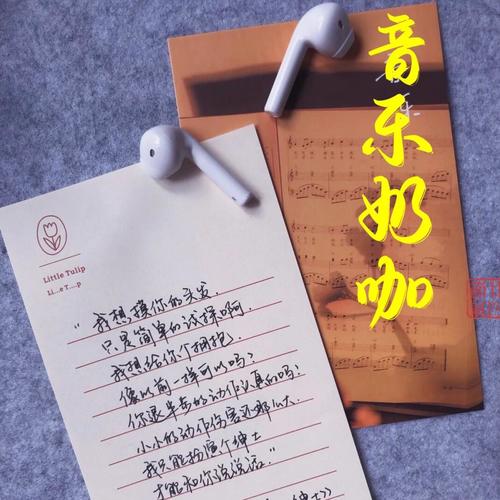 音乐奶咖
Little Tulip
Li...e T....p
"我想摸你的头发,
只是简单的试探啊,
我想给你个拥抱,
像以前一样可以吗?
你退半步的动作认真的吗?
小小的动作伤害还那么大,
我只能扮演个绅士
才能和你说说话。"
绅士》